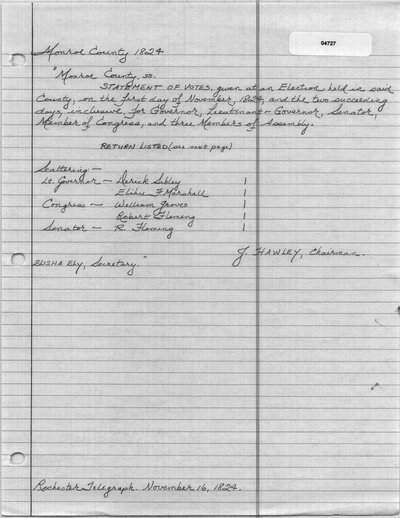 04727
Monroe County 1824
"Monroe County, ss.
STATEMENT OF VOTES, given at an Election held in said
County, on the first day of November, 1824, and the two succeeding
days, inclusive, for Governor, Lieutenant-Governor, Senator,
Member of Congress, and three Members of Assembly.
RETURN LISTED (see next page)
Scattering:-
Lt. Governor - Derick Sibley 1
Elihu F. Marshall 1
Congress - William Groves 1
Robert Fleming 1
Senator - R. Fleming 1
J. HAWLEY, Chairman.
ELISHA ELY, Secretary."
Rochester Telegraph. November 16, 1824.